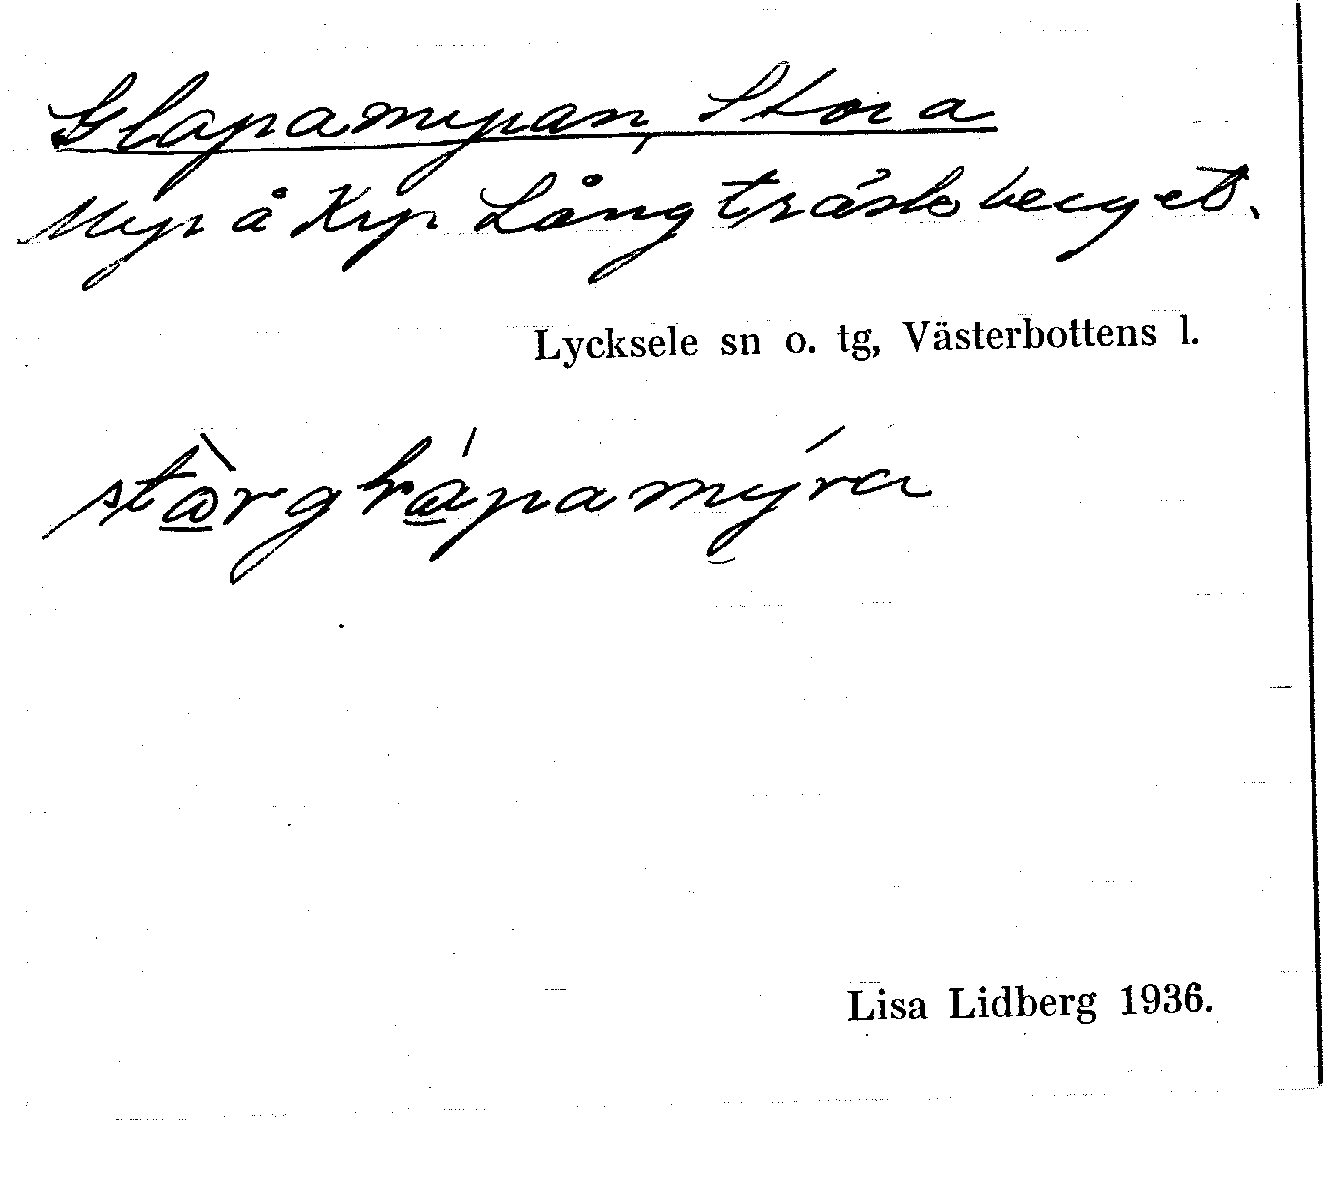 Glapamyran, Stora
Myr å Kzyr Långträskberget.
Lycksele sn o. tg, Västerbottens l.
stòrglápamýra
Lisa Lidberg 1936.